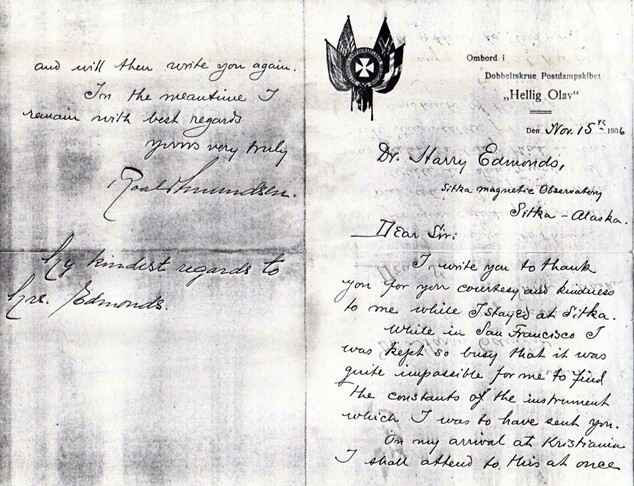 Ombord i
Dobbeltskrue Postdampskibet
„Hellig Olav“
Den Nov. 15 th 1906
Dr. Harry Edmonds,
Sitka magnetic Observatory
Sitka - Alaska.
Dear Sir:
I write you to thank
you for your courtesy and kindness
to me while I stayed at Sitka.
While in San Francisco I
was kept so busy that it was
quite impossible for me to find
the constants of the instrument
which I was to have sent you.
On my arrival at Kristiania
I shall attend to this at once
and will then write you again.
In the meantime I
remain with best regards
yours very truly
Roald Amundsen.
My kindest regards to
Mrs. Edmonds.